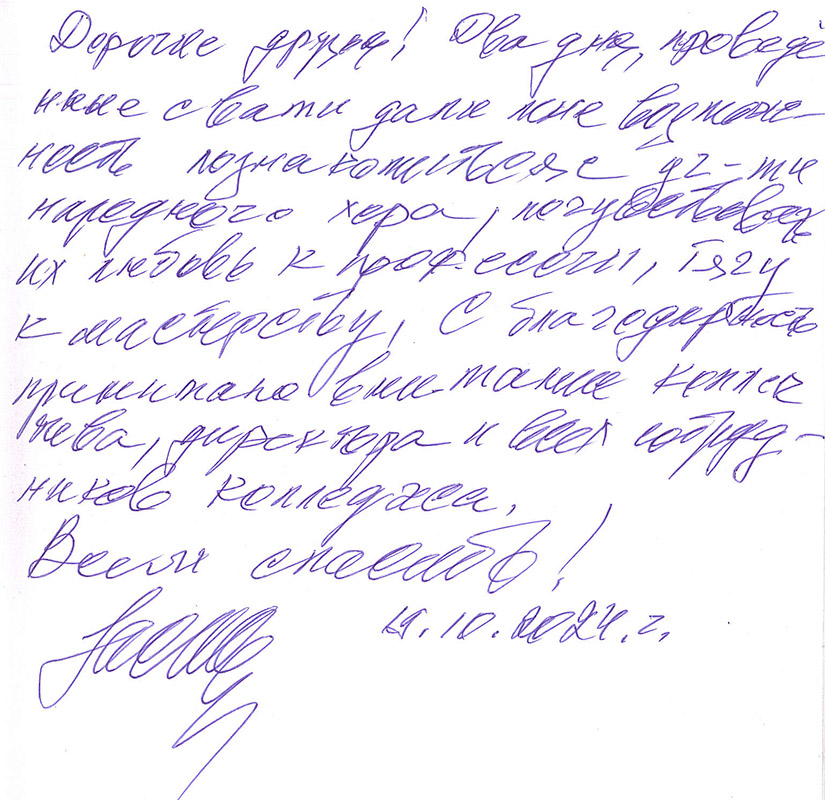 Дорогие друзья! Два дня, проведё
нные с вами дали мне возмож-
ность познакомиться с
народного хора, почувствовать
их любовь к профессии, тягу
к мастерству. С благодарностью
принимаю внимание
директора и всех сотруд-
ников колледжа.
Всем спасибо!
10.2024.г.